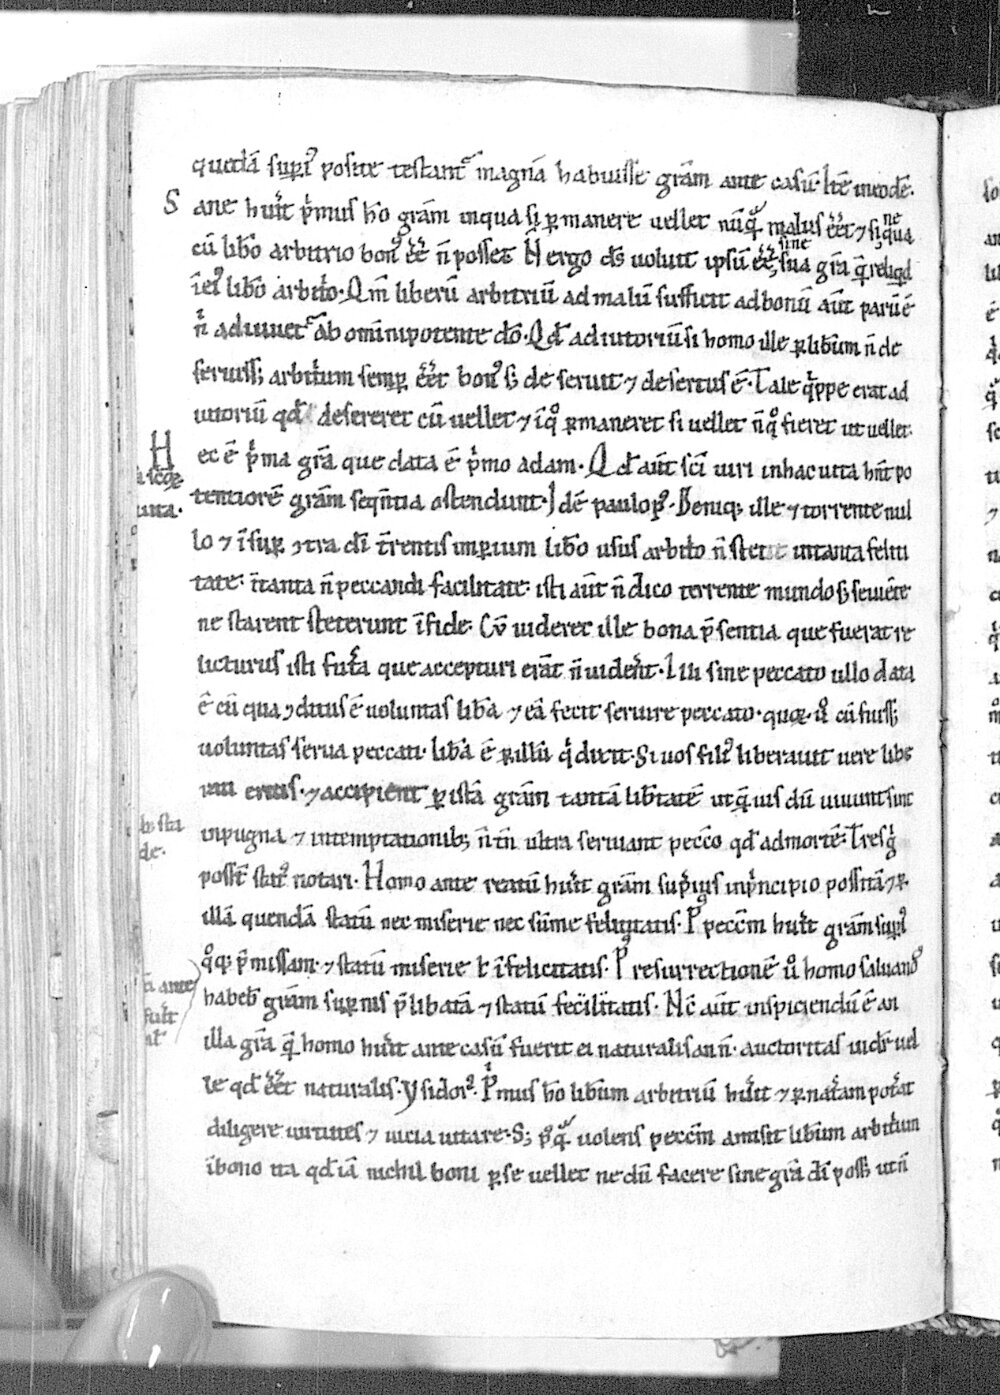 quedā suꝑi⁹ posite testant᷑ magnā habuisse grām ante casū. Itē in eodē.
S ane huit pͥmus hō grām in qua si ꝑmanere uellet nūq̄ malus eēt ⁊ sine qua
cū libͦo arbitrio bon⁹ eē n̄ posset. N̄ ergo dſ uoluit ipsū eē sine sua grā q̄ reliqͥd
ī ei⁹ libͦo arbitͦo. Qm̄ liberū arbitriū ad malū sufficit ad bonū aūt parū ē
n̄ adiuuet᷑ ab omnipotente dō. Qd̄ adiutoriū si homo ille ꝑ libūm n̄ de
seruiss; arbitͥum semꝑ eēt bon⁹ sꝫ deseruit ⁊ desertus ē. Tale qͥppe erat ad
iutoriū qd̄ desereret cū uellet ⁊ ī qͦ ꝑmaneret si uellet n̄ qͦ fieret ut uellet.
H ec ē pͥma grā que data ē pͥmo adam. Qd̄ aūt scī uiri in hac uita hn̄t po
tentiorē grām seqn̄tia ostendunt. Idē paulo p⁹. Deniqꝫ ille ⁊ torrente nul
lo ⁊ īsuꝑ ꝯtra dī t̄rentis imꝑium libͦo usus arbitͦo n̄ stetit in tanta felici
tate. in tanta n̄ peccandi facilitate. isti aūt n̄ dico terrente mundo sꝫ seuiēte
ne starent steterunt ī fide. Cū uideret ille bona p̄sentia que fuerat re
licturus isti futᷓa que accepturi erāt n̄ uiderͣt. Illi sine peccato ullo data
ē cū qua ꝯditus ē uoluntas libͣa ⁊ eā fecit seruire peccato. quoꝝ ū cū fuiss;
uoluntas serua peccati. libͣa ē ꝑ illū qͥ dixit. Si uos fili⁹ liberauit uere libe
ri eritis. ⁊ accipient ꝑ istā grām tantā libͭtatē ut q̄uis dū uiuunt sint
inpugna ⁊ in temptationibꝫ n̄ tn̄ ultra seruiant pecc̄o qd̄ ad mortē. Tres gͦ
possͭ stat⁹ notari. Homo ante reatū huit grām supͥus in pͥncipio possitā ⁊ ꝑ
illā quendā statū nec miserie nec sūme felicitatis. P⁹ pecc̄m huit grām suꝑi⁹
qͦqꝫ pͥmissam. ⁊ statū miserie ł īfelicitatis. P⁹ resurrectionē ū homo saluand⁹
habebͭ grām suꝑni⁹ p̄libatā ⁊ statū felicitatis. Nc̄ aūt inspiciendū ē an
illa grā q̄ homo huit ante casū fuerit ei naturalis an n̄. auctoritas uidͭ uel
le qd̄ eēt naturalis. Ysidor⁹. Pͥmus hō libūm arbitriū huit ⁊ ꝑ natͣam potͣat
diligere uirtutes ⁊ uicia uitare. Sꝫ p⁹q̄ uolens pecc̄m amisit libūm arbitͥum
ī bono ita qd̄ iā nichil boni ꝑ se uellet nedū facere sine grā dī poss; ut n̄